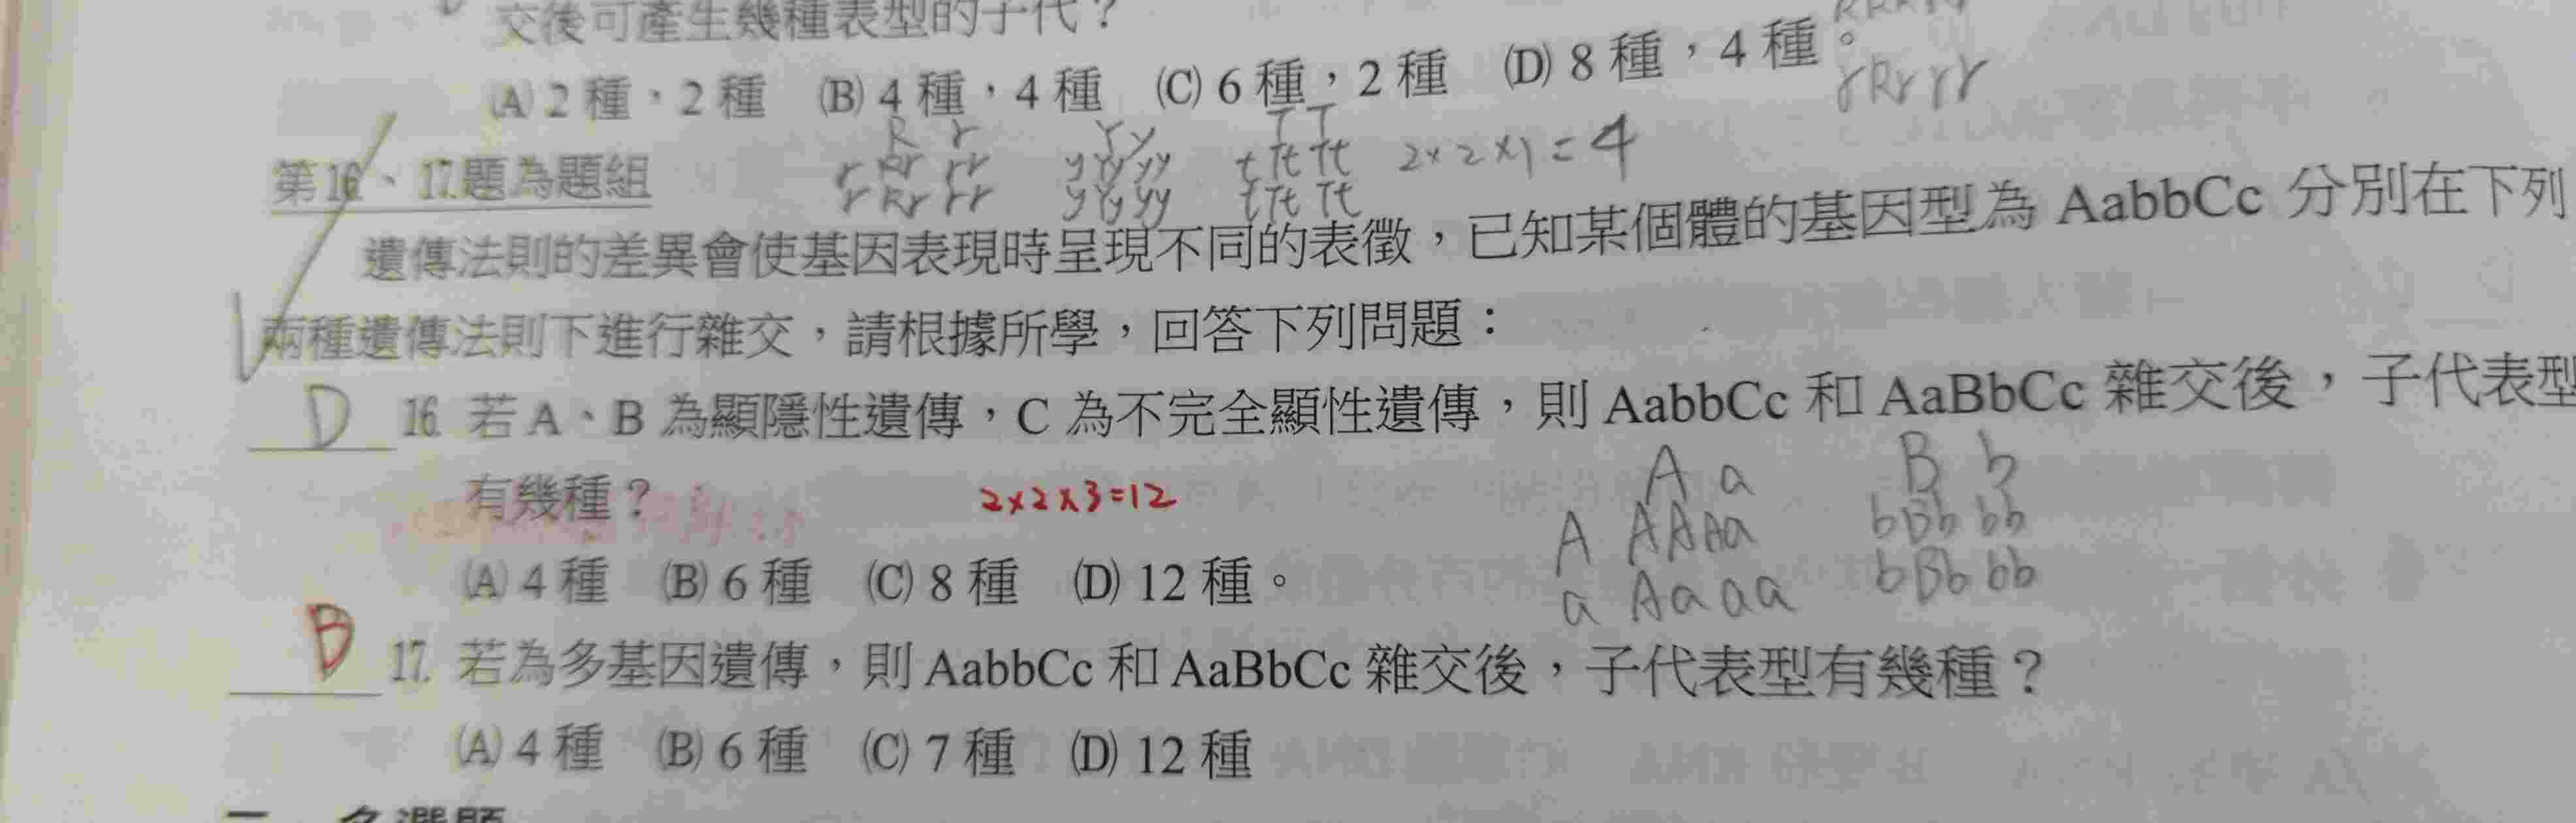 交後可產生幾種表型的子代？
(A) 2 種，2 種 (B) 4 種，4 種 (C) 6 種，2 種 (D) 8 種，4 種。
rRrrr
R r Y y T T
第16、17.題為題組 r Rr rr y Yy yy t Tt Tt 2×2×1=4
r Rr rr y Yy yy t Tt Tt
遺傳法則的差異會使基因表現時呈現不同的表徵，已知某個體的基因型為 AabbCc 分別在下列
兩種遺傳法則下進行雜交，請根據所學，回答下列問題：
D 16. 若 A、B 為顯隱性遺傳，C 為不完全顯性遺傳，則 AabbCc 和 AaBbCc 雜交後，子代表型
有幾種？ 2×2×3=12 A a B b
A AA Aa b Bb bb
(A) 4 種 (B) 6 種 (C) 8 種 (D) 12 種。 a Aa aa b Bb bb
B 17. 若為多基因遺傳，則 AabbCc 和 AaBbCc 雜交後，子代表型有幾種？
(A) 4 種 (B) 6 種 (C) 7 種 (D) 12 種